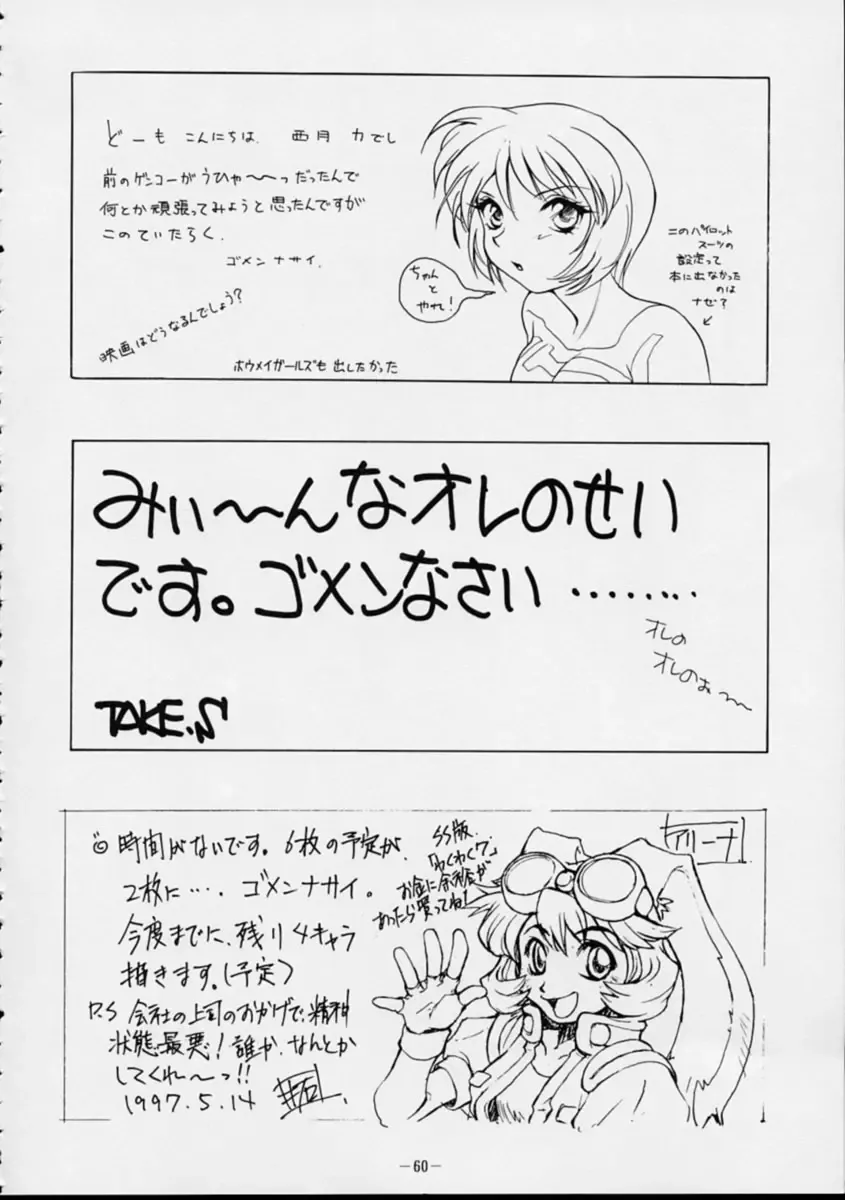 どーも こんにちは. 西月 力でし
前のゲンコーがうひゃ〜〜っだったんで
何とか頑張ってみようと思ったんですが
このていたらく.
ゴメンナサイ.
映画はどうなるんでしょう?
ホウメイガールズも出したかった
ちゃんと
やれ!
このパイロット
スーツの
設定って
本に出なかった
のは
ナゼ?
みぃ〜〜んなオレのせい
です。ゴメンなさい ........
オレの
オレのぉ〜〜
TAKE.S
時間がないです。6枚の予定が、
2枚に…. ゴメンナサイ。
今度までに、残り4キャラ
描きます。(予定)
P.S 会社の上司のおかげで、精神
状態最悪! 誰か、なんとか
してくれ〜っ!!
1997.5.14
SS版.
「わくわく7」
お金に余裕が
あったら買ってね!
アリーナ
-60-